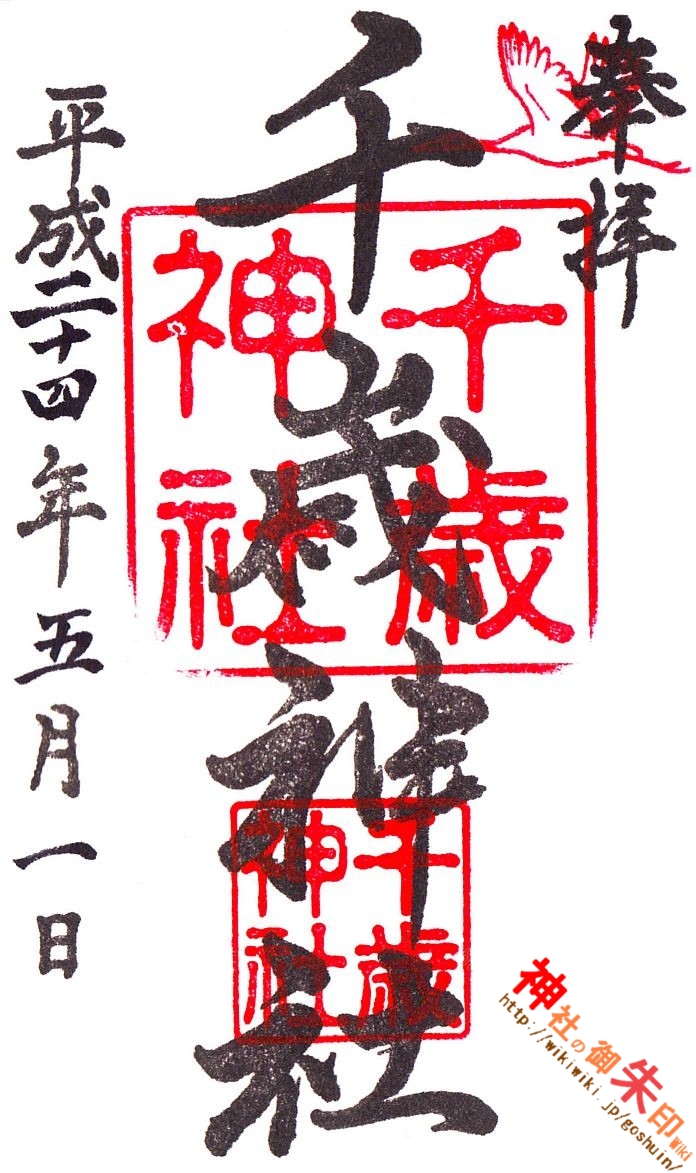 奉拝
千歳神社
千歳
神社
千歳
神社
平成二十四年五月一日
神社の御朱印Wiki
http://wikiwiki.jp/goshuin/